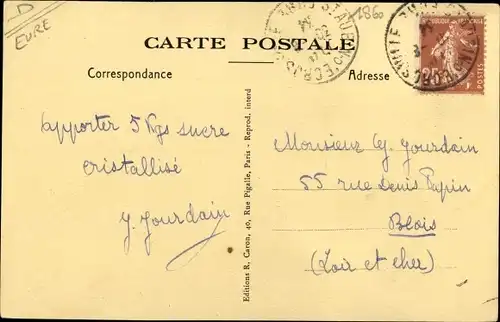 D
EURE
1860
CARTE POSTALE
Correspondance
Adresse
apporter 5 Kgs sucre
cristallisé
y. Jourdain
Editions R. Caron, 40, Rue Pigalle, Paris - Reprod. interd
Monsieur Cy. Jourdain
55 rue Denis Papin
Blois
(Loir et cher)
POSTES